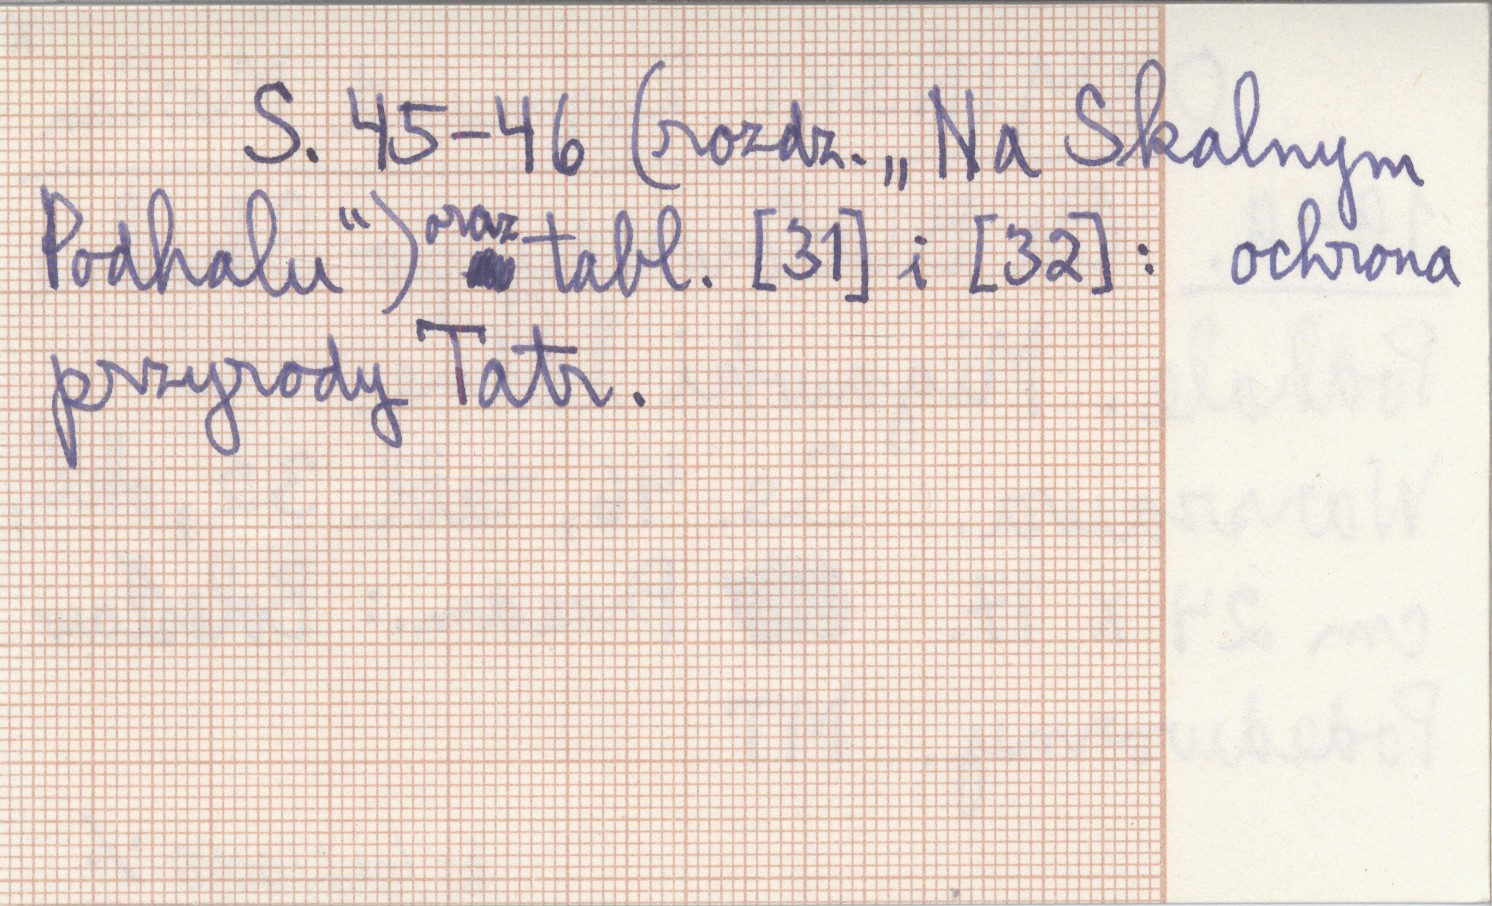 S. 45-46 (rozdz. „Na Skalnym
Podhalu“) oraz tabl. [31] i [32]: ochrona
przyrody Tatr.